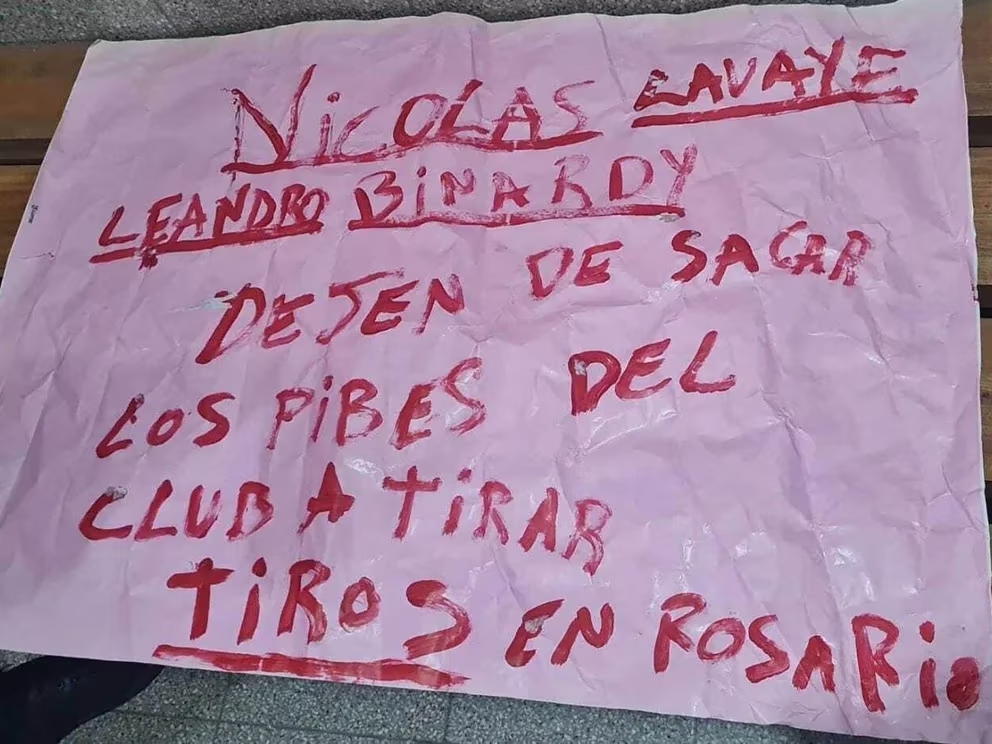 NiCOLAS LAVAYE
LEANDRO BiNARDY
DEJEN DE SACAR
LOS PiBES DEL
CLUB A TiRAR
TiROS EN ROSARiO